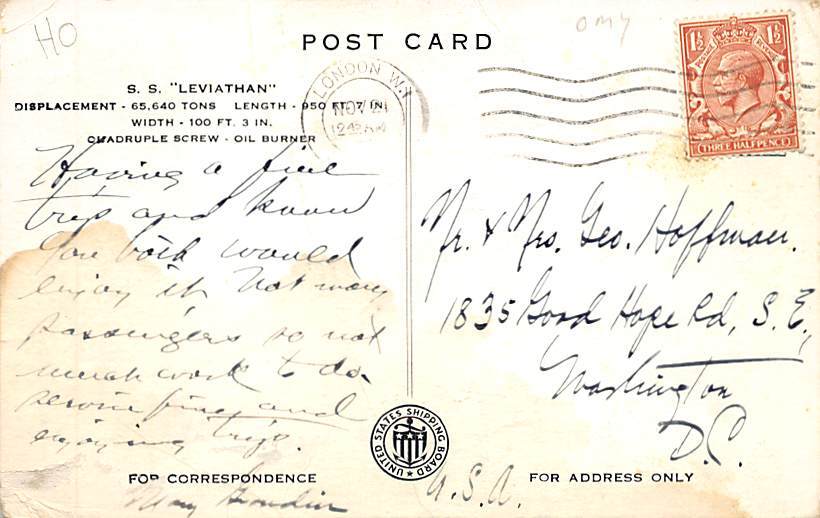 HO
OMY
POST CARD
S. S. "LEVIATHAN"
DISPLACEMENT - 65,640 TONS LENGTH - 950 FT. 7 IN.
WIDTH - 100 FT. 3 IN.
QUADRUPLE SCREW - OIL BURNER
LONDON W.1
NOV 21
12 AM
1½ 1½
POSTAGE
THREE HALFPENCE
Having a fine
trip and know
you both would
enjoy it. Not many
passengers so not
much work to do.
Service fine, and
enjoying trip.
Mary
Mr. & Mrs. Geo. Hoffman.
1835 Good Hope Rd, S. E.,
Washington
D.C.
U.S.A.
UNITED STATES SHIPPING BOARD
FOR CORRESPONDENCE
FOR ADDRESS ONLY